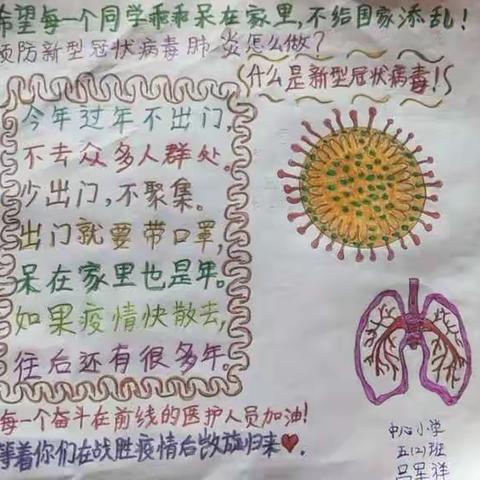 希望每一个同学乖乖呆在家里,不给国家添乱!
预防新型冠状病毒肺炎怎么做?
什么是新型冠状病毒!
今年过年不出门,
不去众多人群处。
少出门,不聚集。
出门就要带口罩,
呆在家里也是年。
如果疫情快散去,
往后还有很多年。
每一个奋斗在前线的医护人员加油!
等着你们在战胜疫情后凯旋归来❤.
中心小学
五(2)班
吕星祥